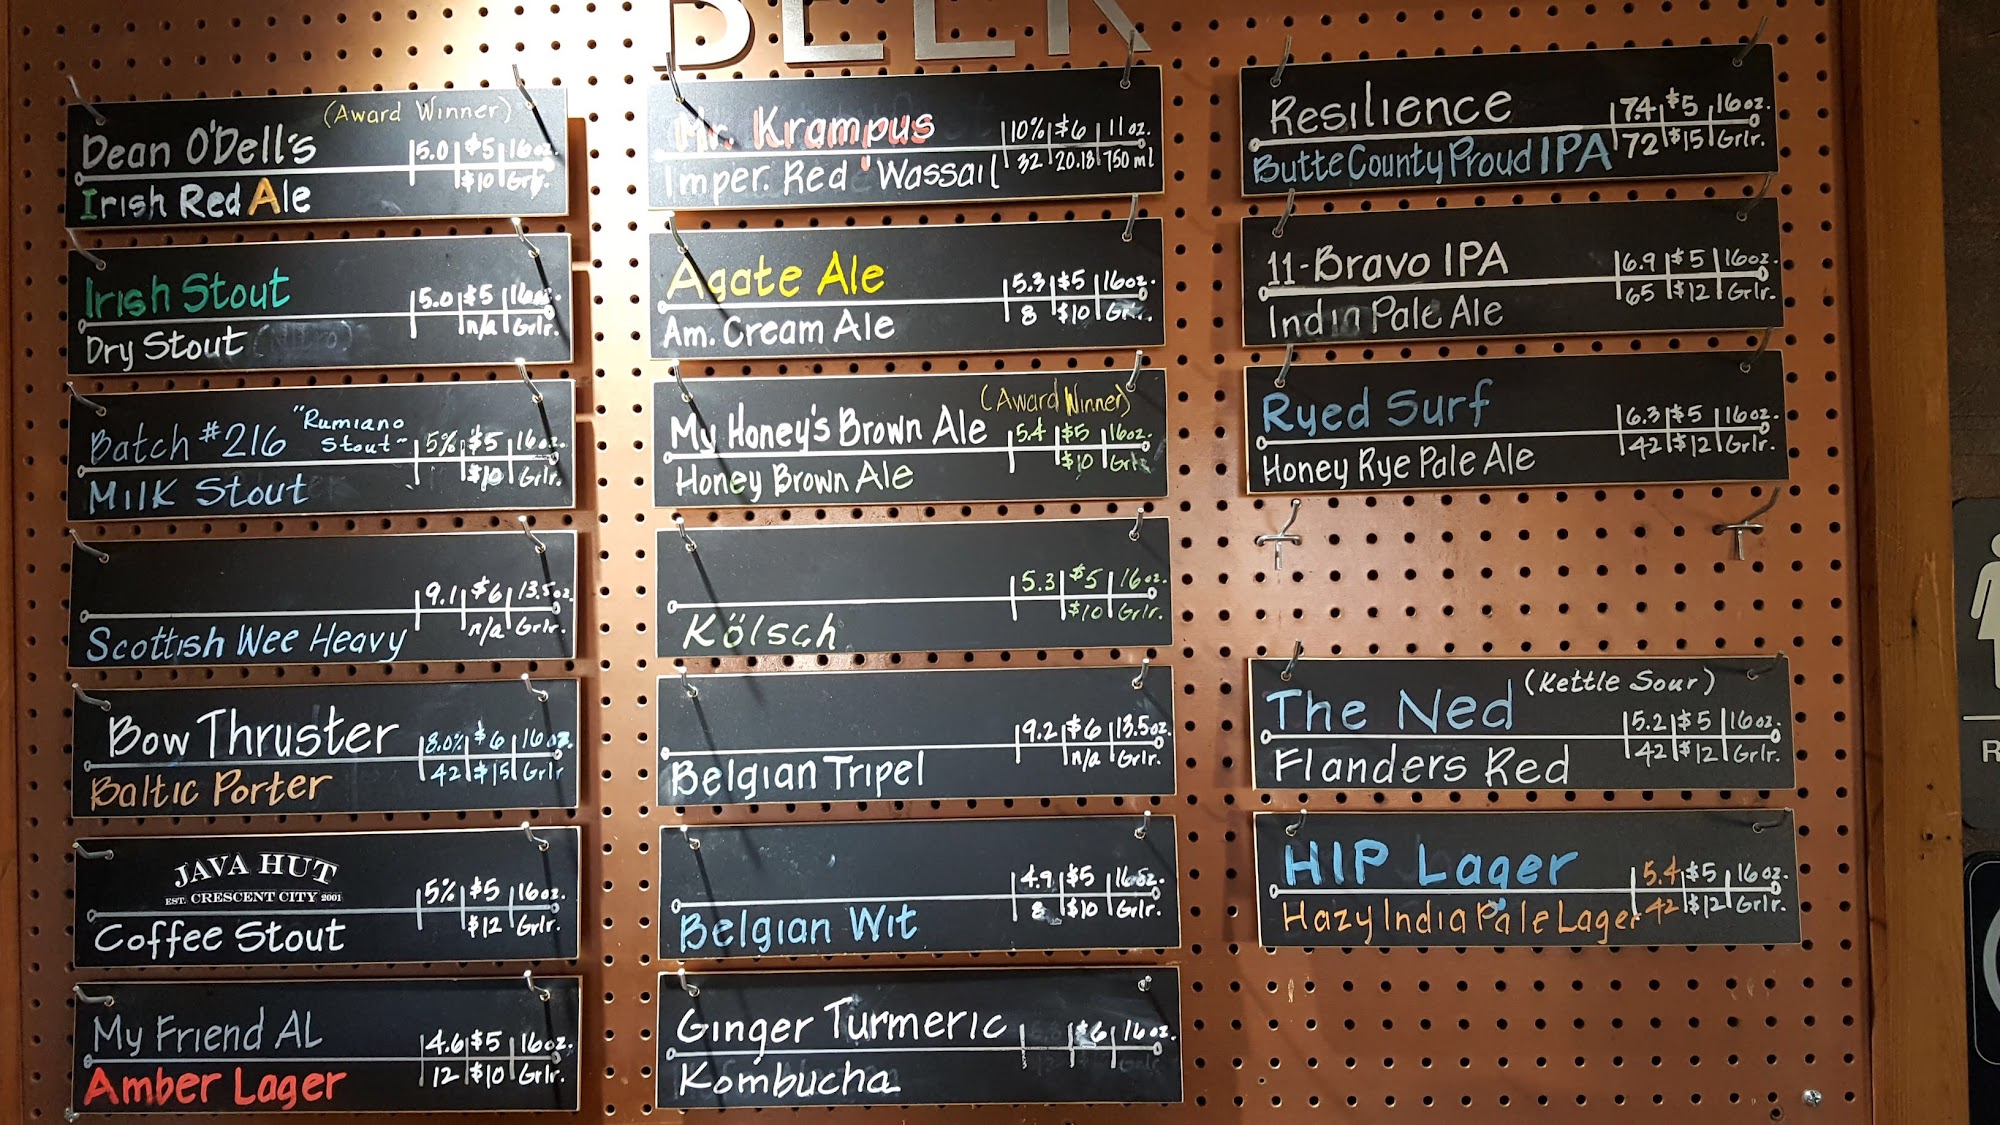 BEER
(Award Winner)
Dean O'Dell's 5.0 $5 16oz.
Irish Red Ale $10 Grlr.
Irish Stout 5.0 $5 16oz.
Dry Stout n/a Grlr.
Batch #216 "Rumiano Stout" 5% $5 16oz.
Milk Stout $10 Grlr.
9.1 $6 13.5oz.
Scottish Wee Heavy n/a Grlr.
Bow Thruster 8.0% $6 16oz.
Baltic Porter 42 $15 Grlr
JAVA HUT
EST. CRESCENT CITY 2001 5% $5 16oz.
Coffee Stout $12 Grlr.
My Friend AL 4.6 $5 16oz.
Amber Lager 12 $10 Grlr.
Mr. Krampus 10% $6 11oz.
Imper. Red Wassail 32 20.18 750 ml
Agate Ale 5.3 $5 16oz.
Am. Cream Ale 8 $10 Grlr.
(Award Winner)
My Honey's Brown Ale 5.4 $5 16oz.
Honey Brown Ale $10 Grlr.
5.3 $5 16oz.
Kölsch $10 Grlr.
9.2 $6 13.5oz.
Belgian Tripel n/a Grlr.
4.9 $5 16oz.
Belgian Wit 8 $10 Grlr.
Ginger Turmeric $6 16oz.
Kombucha
Resilience 7.4 $5 16oz.
Butte County Proud IPA 72 $15 Grlr.
11-Bravo IPA 6.9 $5 16oz.
India Pale Ale 65 $12 Grlr.
Ryed Surf 6.3 $5 16oz.
Honey Rye Pale Ale 42 $12 Grlr.
(Kettle Sour)
The Ned 5.2 $5 16oz.
Flanders Red 42 $12 Grlr.
HIP Lager 5.4 $5 16oz.
Hazy India Pale Lager 42 $12 Grlr.
R